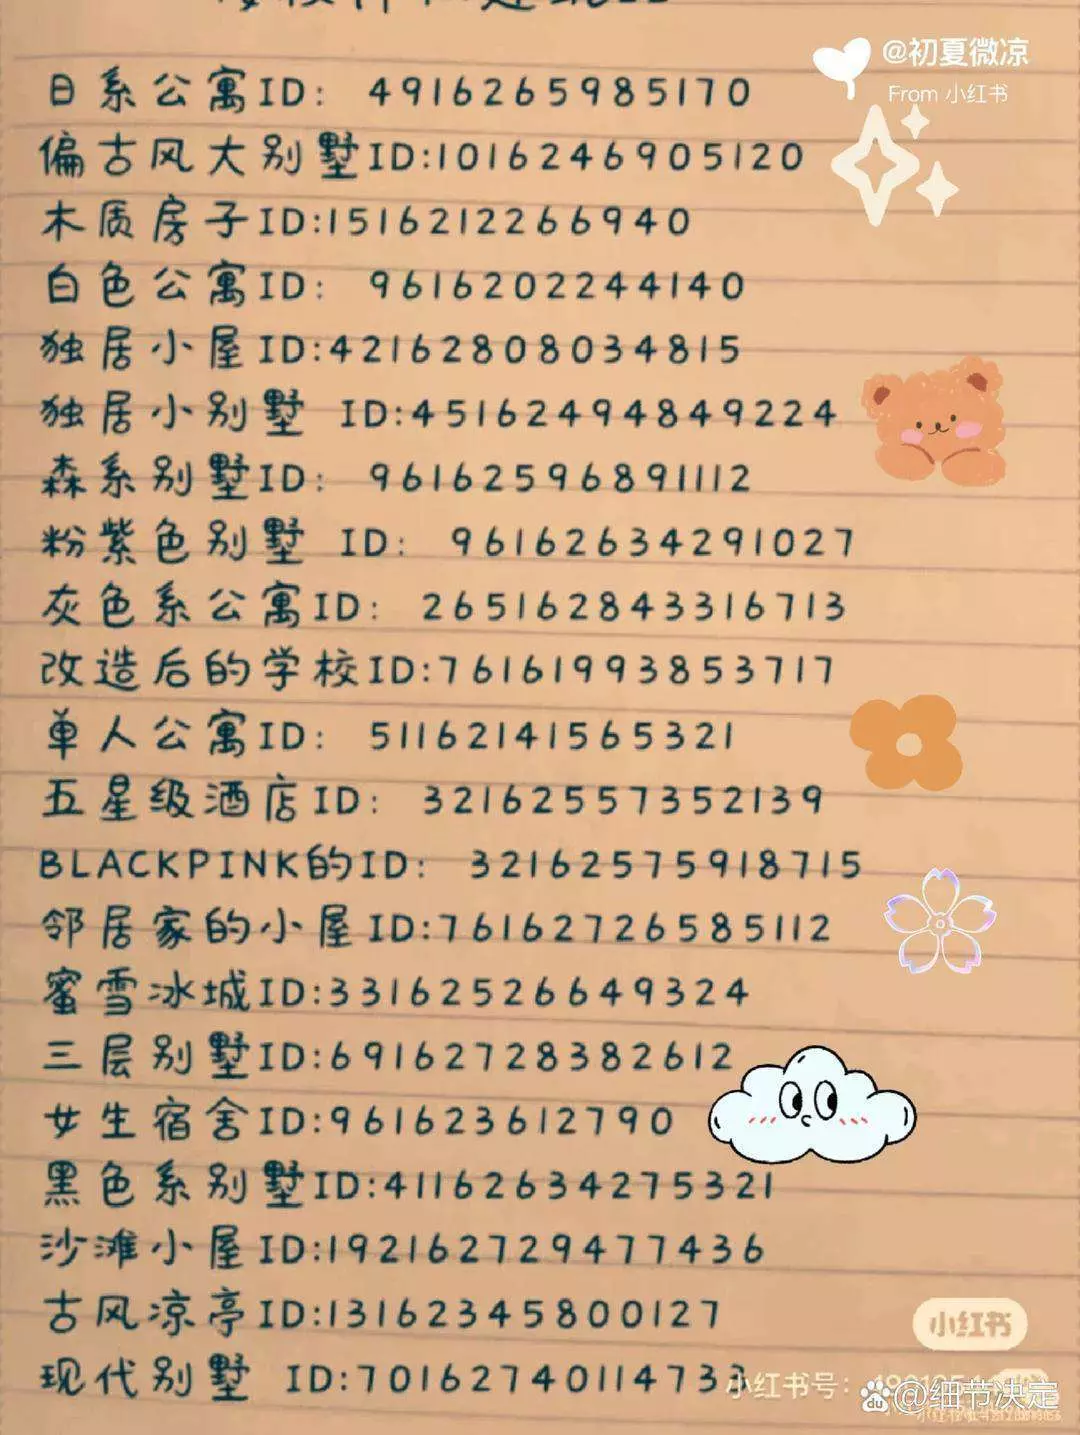 @初夏微凉
From 小红书
日系公寓ID: 4916265985170
偏古风大别墅ID:1016246905120
木质房子ID:1516212266940
白色公寓ID: 9616202244140
独居小屋ID:42162808034815
独居小别墅 ID:45162494849224
森系别墅ID: 96162596891112
粉紫色别墅 ID: 96162634291027
灰色系公寓ID: 265162843316713
改造后的学校ID:76161993853717
单人公寓ID: 51162141565321
五星级酒店ID: 32162557352139
BLACKPINK的ID: 32162575918715
邻居家的小屋ID:76162726585112
蜜雪冰城ID:33162526649324
三层别墅ID:69162728382612
女生宿舍ID:961623612790
黑色系别墅ID:41162634275321
沙滩小屋ID:192162729477436
古风凉亭ID:13162345800127
小红书
现代别墅 ID:70162740114733
小红书号:
du @细节决定